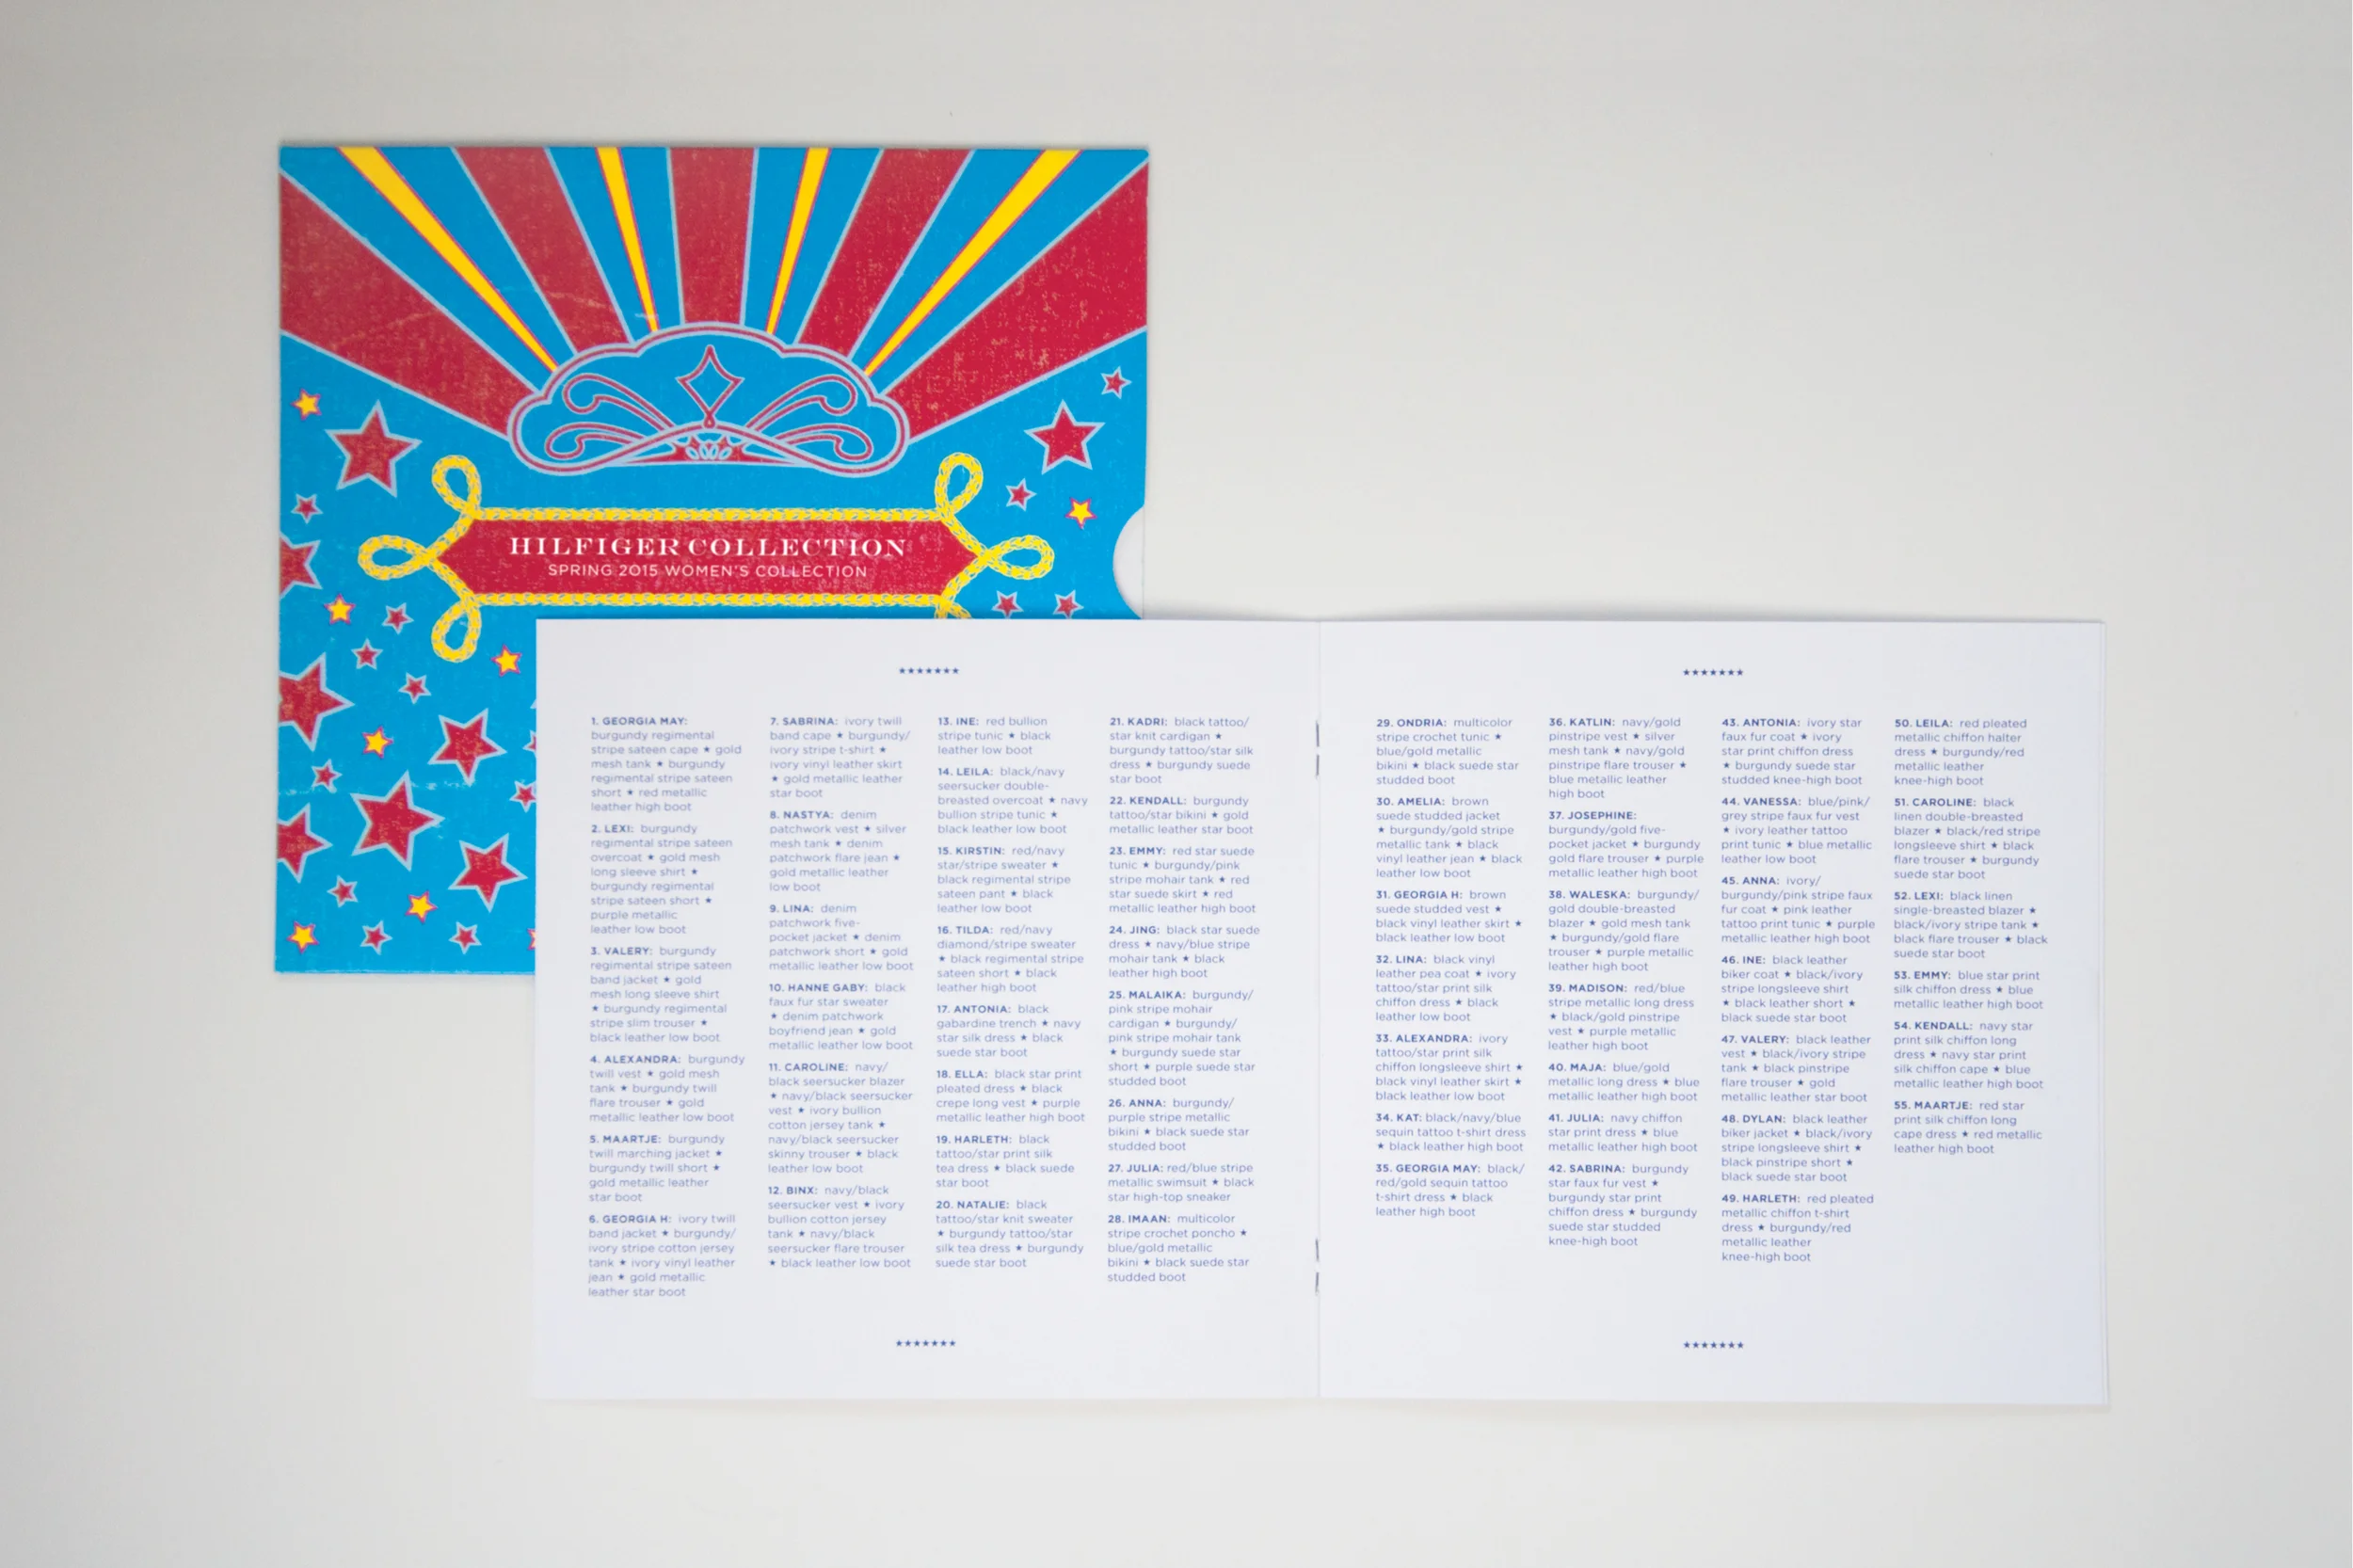 HILFIGER COLLECTION
SPRING 2015 WOMEN'S COLLECTION
★★★★★★★
1. GEORGIA MAY:
burgundy regimental
stripe sateen cape ★ gold
mesh tank ★ burgundy
regimental stripe sateen
short ★ red metallic
leather high boot
2. LEXI: burgundy
regimental stripe sateen
overcoat ★ gold mesh
long sleeve shirt ★
burgundy regimental
stripe sateen short ★
purple metallic
leather low boot
3. VALERY: burgundy
regimental stripe sateen
band jacket ★ gold
mesh long sleeve shirt
★ burgundy regimental
stripe slim trouser ★
black leather low boot
4. ALEXANDRA: burgundy
twill vest ★ gold mesh
tank ★ burgundy twill
flare trouser ★ gold
metallic leather low boot
5. MAARTJE: burgundy
twill marching jacket ★
burgundy twill short ★
gold metallic leather
star boot
6. GEORGIA H: ivory twill
band jacket ★ burgundy/
ivory stripe cotton jersey
tank ★ ivory vinyl leather
jean ★ gold metallic
leather star boot
7. SABRINA: ivory twill
band cape ★ burgundy/
ivory stripe t-shirt ★
ivory vinyl leather skirt
★ gold metallic leather
star boot
8. NASTYA: denim
patchwork vest ★ silver
mesh tank ★ denim
patchwork flare jean ★
gold metallic leather
low boot
9. LINA: denim
patchwork five-
pocket jacket ★ denim
patchwork short ★ gold
metallic leather low boot
10. HANNE GABY: black
faux fur star sweater
★ denim patchwork
boyfriend jean ★ gold
metallic leather low boot
11. CAROLINE: navy/
black seersucker blazer
★ navy/black seersucker
vest ★ ivory bullion
cotton jersey tank ★
navy/black seersucker
skinny trouser ★ black
leather low boot
12. BINX: navy/black
seersucker vest ★ ivory
bullion cotton jersey
tank ★ navy/black
seersucker flare trouser
★ black leather low boot
13. INE: red bullion
stripe tunic ★ black
leather low boot
14. LEILA: black/navy
seersucker double-
breasted overcoat ★ navy
bullion stripe tunic ★
black leather low boot
15. KIRSTIN: red/navy
star/stripe sweater ★
black regimental stripe
sateen pant ★ black
leather low boot
16. TILDA: red/navy
diamond/stripe sweater
★ black regimental stripe
sateen short ★ black
leather high boot
17. ANTONIA: black
gabardine trench ★ navy
star silk dress ★ black
suede star boot
18. ELLA: black star print
pleated dress ★ black
crepe long vest ★ purple
metallic leather high boot
19. HARLETH: black
tattoo/star print silk
tea dress ★ black suede
star boot
20. NATALIE: black
tattoo/star knit sweater
★ burgundy tattoo/star
silk tea dress ★ burgundy
suede star boot
21. KADRI: black tattoo/
star knit cardigan ★
burgundy tattoo/star silk
dress ★ burgundy suede
star boot
22. KENDALL: burgundy
tattoo/star bikini ★ gold
metallic leather star boot
23. EMMY: red star suede
tunic ★ burgundy/pink
stripe mohair tank ★ red
star suede skirt ★ red
metallic leather high boot
24. JING: black star suede
dress ★ navy/blue stripe
mohair tank ★ black
leather high boot
25. MALAIKA: burgundy/
pink stripe mohair
cardigan ★ burgundy/
pink stripe mohair tank
★ burgundy suede star
short ★ purple suede star
studded boot
26. ANNA: burgundy/
purple stripe metallic
bikini ★ black suede star
studded boot
27. JULIA: red/blue stripe
metallic swimsuit ★ black
star high-top sneaker
28. IMAAN: multicolor
stripe crochet poncho ★
blue/gold metallic
bikini ★ black suede star
studded boot
★★★★★★★
★★★★★★★
29. ONDRIA: multicolor
stripe crochet tunic ★
blue/gold metallic
bikini ★ black suede star
studded boot
30. AMELIA: brown
suede studded jacket
★ burgundy/gold stripe
metallic tank ★ black
vinyl leather jean ★ black
leather low boot
31. GEORGIA H: brown
suede studded vest ★
black vinyl leather skirt ★
black leather low boot
32. LINA: black vinyl
leather pea coat ★ ivory
tattoo/star print silk
chiffon dress ★ black
leather low boot
33. ALEXANDRA: ivory
tattoo/star print silk
chiffon longsleeve shirt ★
black vinyl leather skirt ★
black leather low boot
34. KAT: black/navy/blue
sequin tattoo t-shirt dress
★ black leather high boot
35. GEORGIA MAY: black/
red/gold sequin tattoo
t-shirt dress ★ black
leather high boot
36. KATLIN: navy/gold
pinstripe vest ★ silver
mesh tank ★ navy/gold
pinstripe flare trouser ★
blue metallic leather
high boot
37. JOSEPHINE:
burgundy/gold five-
pocket jacket ★ burgundy
gold flare trouser ★ purple
metallic leather high boot
38. WALESKA: burgundy/
gold double-breasted
blazer ★ gold mesh tank
★ burgundy/gold flare
trouser ★ purple metallic
leather high boot
39. MADISON: red/blue
stripe metallic long dress
★ black/gold pinstripe
vest ★ purple metallic
leather high boot
40. MAJA: blue/gold
metallic long dress ★ blue
metallic leather high boot
41. JULIA: navy chiffon
star print dress ★ blue
metallic leather high boot
42. SABRINA: burgundy
star faux fur vest ★
burgundy star print
chiffon dress ★ burgundy
suede star studded
knee-high boot
43. ANTONIA: ivory star
faux fur coat ★ ivory
star print chiffon dress
★ burgundy suede star
studded knee-high boot
44. VANESSA: blue/pink/
grey stripe faux fur vest
★ ivory leather tattoo
print tunic ★ blue metallic
leather low boot
45. ANNA: ivory/
burgundy/pink stripe faux
fur coat ★ pink leather
tattoo print tunic ★ purple
metallic leather high boot
46. INE: black leather
biker coat ★ black/ivory
stripe longsleeve shirt
★ black leather short ★
black suede star boot
47. VALERY: black leather
vest ★ black/ivory stripe
tank ★ black pinstripe
flare trouser ★ gold
metallic leather star boot
48. DYLAN: black leather
biker jacket ★ black/ivory
stripe longsleeve shirt ★
black pinstripe short ★
black suede star boot
49. HARLETH: red pleated
metallic chiffon t-shirt
dress ★ burgundy/red
metallic leather
knee-high boot
50. LEILA: red pleated
metallic chiffon halter
dress ★ burgundy/red
metallic leather
knee-high boot
51. CAROLINE: black
linen double-breasted
blazer ★ black/red stripe
longsleeve shirt ★ black
flare trouser ★ burgundy
suede star boot
52. LEXI: black linen
single-breasted blazer ★
black/ivory stripe tank ★
black flare trouser ★ black
suede star boot
53. EMMY: blue star print
silk chiffon dress ★ blue
metallic leather high boot
54. KENDALL: navy star
print silk chiffon long
dress ★ navy star print
silk chiffon cape ★ blue
metallic leather high boot
55. MAARTJE: red star
print silk chiffon long
cape dress ★ red metallic
leather high boot
★★★★★★★